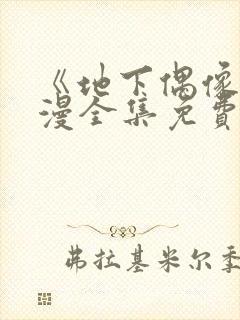 《地下偶像
漫全集免费
弗拉基米尔季